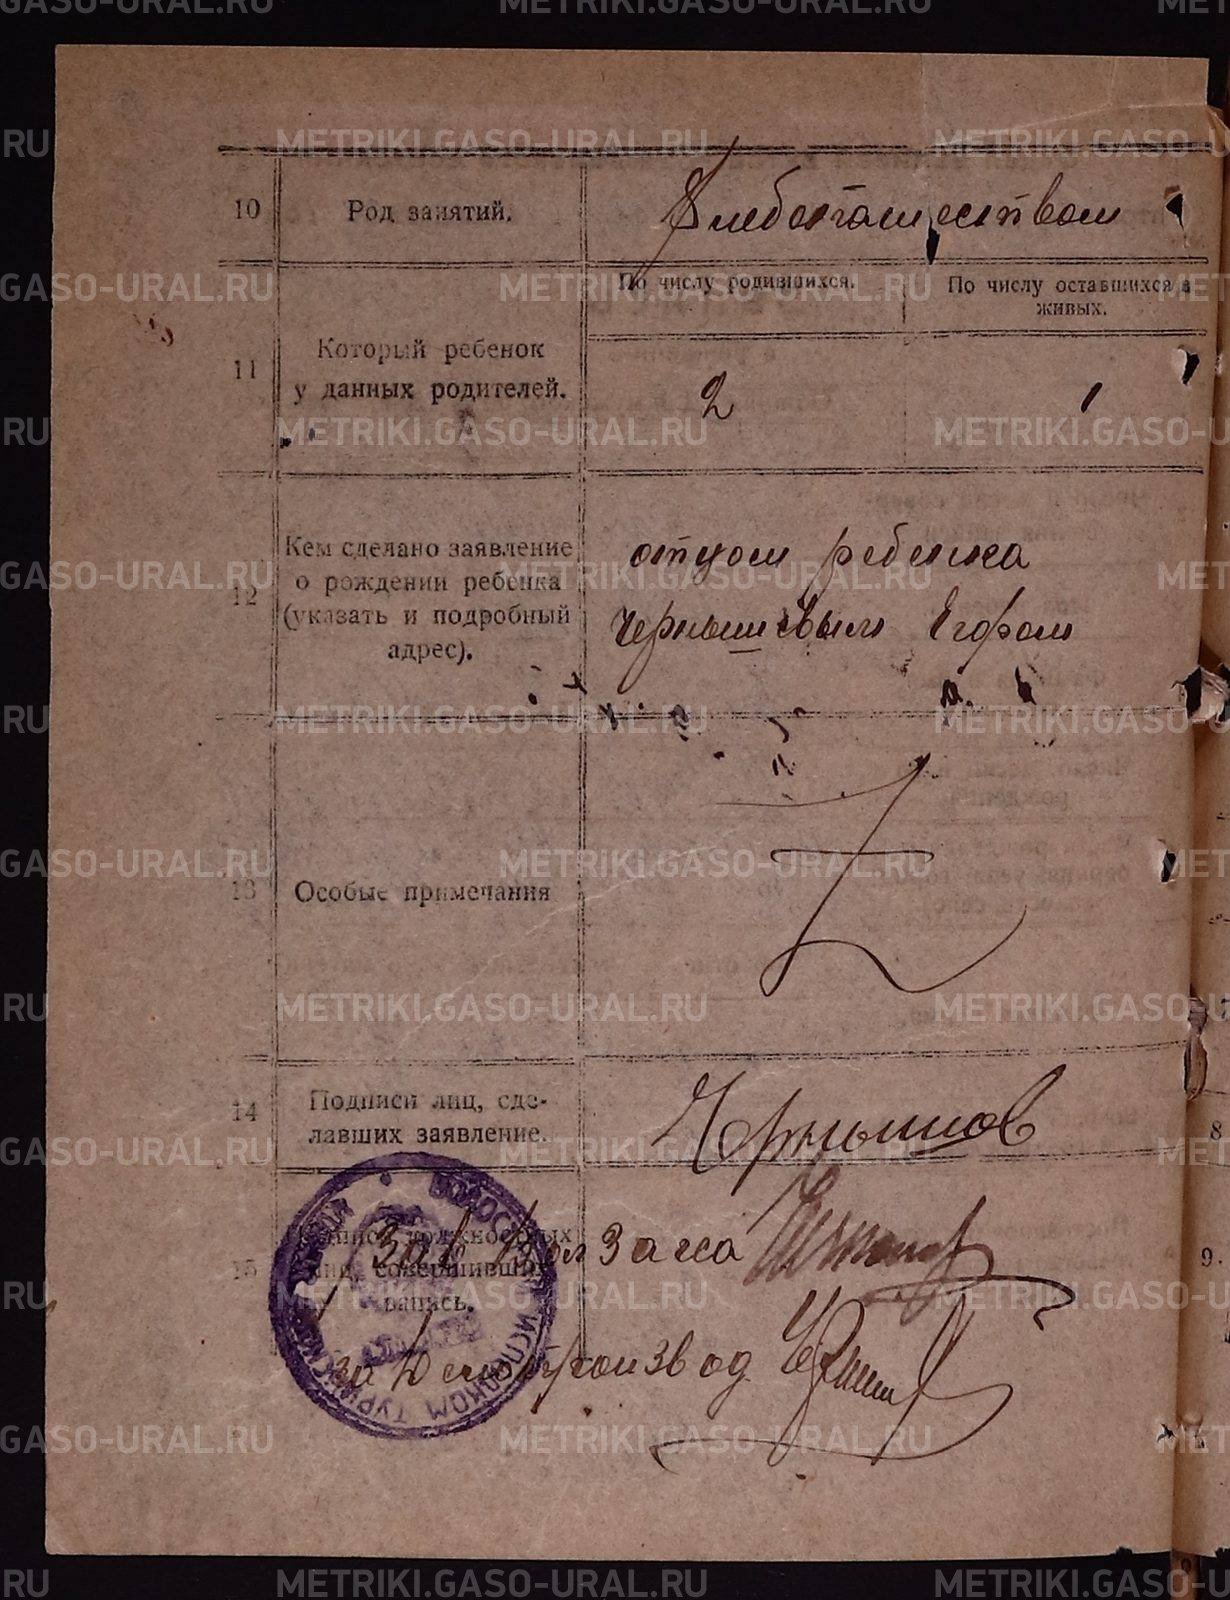 METRIKI.GASO-URAL.RU
10
Род занятий.
Хлебопашеством
По числу родившихся.
По числу оставшихся в
живых.
11
Который ребенок
у данных родителей.
2
1
12
Кем сделано заявление
о рождении ребенка
(указать и подробный
адрес).
отцом ребенка
Чернышевым Егором
13
Особые примечания
14
Подписи лиц, сде-
лавших заявление.
Чернышов
15
лиц, совершивших
запись.
Зав Вол Загса
за Делопроизвод.
8
9.